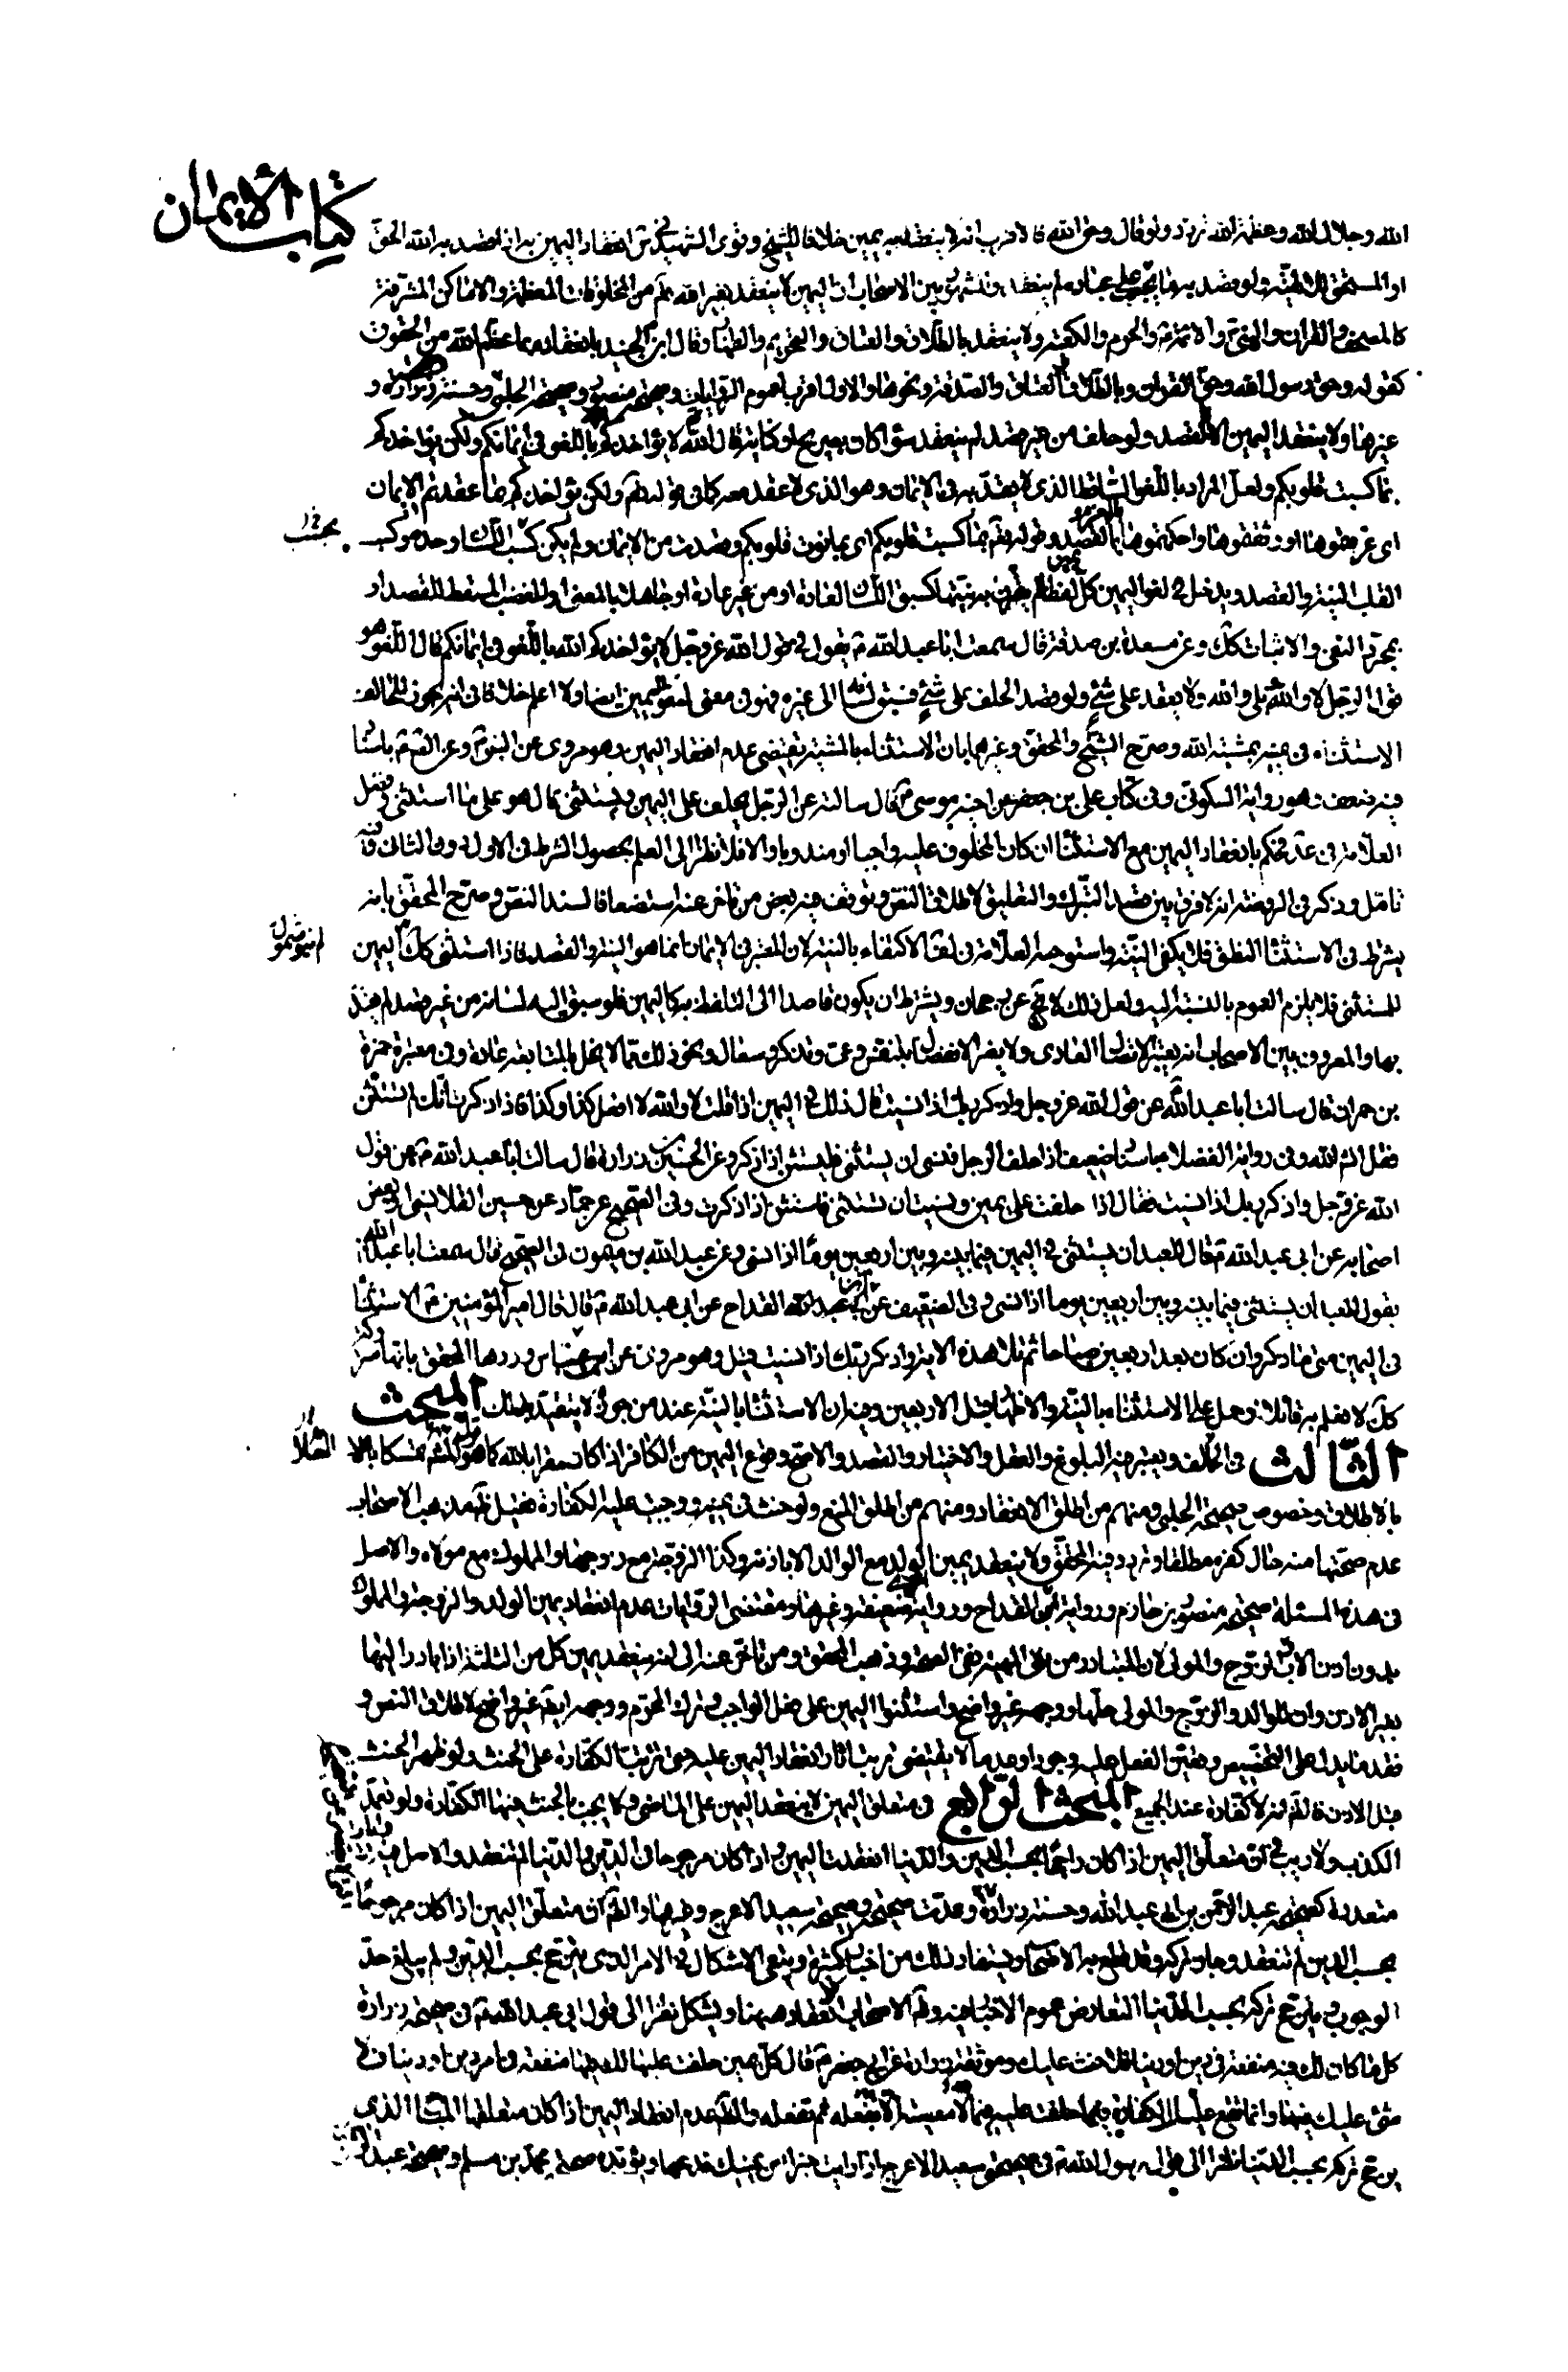 كتاب الأيمان
الله وجلال الله وعظمة الله تردد ولو قال وحق الله فالاقرب انه لا ينعقد به يمين خلافا للشيخ وقوى الشهيد في س انعقاد اليمين به اذا قصد به الله الحق
او المستحق للالهية ولو قصد به ما يجب على عباده لم ينعقد والمشهور بين الاصحاب ان اليمين لا ينعقد بغير الله تعالى من المخلوقات المعظمة والاماكن المشرفة
كالمصحف والقران والنبي والائمة والحرم والكعبة ولا ينعقد بالطلاق والعتاق والتحريم والظهار وقال ابن الجنيد بانعقاده بما عظم الله من الحقوق
كقوله وحق رسول الله وحق القران وبالطلاق والعتاق والصدقة ونحوها والاول اقرب لعموم الروايات وصحيحة منصور وصحيحة الحلبي وحسنة زرارة و
غيرها ولا ينعقد اليمين الا بالقصد ولو حلف من غير قصد لم ينعقد سواء كان بصريح او كناية قال الله لا يؤاخذكم الله باللغو في ايمانكم ولكن يؤاخذكم
بما كسبت قلوبكم ولعل المراد باللغو الساقط الذي لا يعتد به في الايمان وهو الذي لا عقد معه كما في قوله تعالى ولكن يؤاخذكم بما عقدتم الايمان
اى عزمتموها او وثقتموها واحكمتموها بالقصد وقوله تعالى بما كسبت قلوبكم اى بما نوت قلوبكم وقصدت من الايمان ولم يكن كسب اللسان وحده وكسب
القلب النية والقصد ويدخل في لغو اليمين كل لفظ لم يقترن به نيتها كسبق اللسان لعادة او من غير عادة او جاهلا بالمعنى او للغضب المسقط للقصد او
بمجرد النفي والاثبات كك وعن مسعدة بن صدقة قال سمعت ابا عبد الله ع يقول في قول الله عز وجل لا يؤاخذكم الله باللغو في ايمانكم قال اللغو هو
قول الرجل لا والله وبلى والله ولا يعقد على شئ ولو قصد الحلف على شئ فسبق لسانه الى غيره فهو في معنى لغو اليمين ايضا ولا اعلم خلافا في انه يجوز للحالف
الاستثناء في يمينه بمشية الله وصرح الشيخ والمحقق وغيرهما بان الاستثناء بالمشية تقتضى عدم انعقاد اليمين وهو مروى عن النبي ص وعن الص ع باسناد
فيه ضعف وهو رواية السكوني وفي كتاب علي بن جعفر عن اخيه موسى ع قال سالته عن الرجل يحلف على اليمين ويستثنى ما حاله قال هو على ما استثنى وفصل
العلامة في عد فحكم بانعقاد اليمين مع الاستثناء ان كان المحلوف عليه واجبا او مندوبا والا فلا نظرا الى العلم بحصول الشرط في الاول دون الثاني وفيه
تامل وذكر في الروضة انه لا فرق بين قصد التبرك والتعليق لاطلاق النص وتوقف فيه بعض من تاخر عنه استضعافا لسند النص وصرح المحقق بانه
يشترط في الاستثناء النطق فلا يكفي النية واستوجه العلامة في لف الاكتفاء بالنية لان المعتبر في الايمان انما هو النية والقصد فاذا استثنى كك لم ينو شمول اليمين
للمستثنى فلا يلزم العموم بالنسبة اليه ولعل ذلك لا يخ عن رجحان ويشترط ان يكون قاصدا الى التلفظ به كاليمين فلو سبق اليه لسانه من غير قصد لم يعتد
بها والمعروف بين الاصحاب انه يعتبر الاتصال العادى ولا يضر الانفصال بتنفس وعى وتذكر وسعال ونحو ذلك مما لا يخل بالمتابعة عادة وفي معتبرة حمزة
بن حمران قال سالت ابا عبد الله عن قول الله عز وجل واذكر ربك اذا نسيت قال ذلك في اليمين اذا قلت لا والله لا افعل كذا وكذا فاذا ذكرت انك لم تستثن
فقل انشاء الله وفي رواية الفضلاء باسناد ضعيف اذا حلف الرجل فنسى ان يستثنى فليستثن اذا ذكر وعن الحسين بن زرارة قال سالت ابا عبد الله ع عن قول
الله عز وجل واذكر ربك اذا نسيت فقال اذا حلفت على يمين ونسيت ان تستثنى فاستثن اذا ذكرت وفي الصحيح عن حماد عن حسين القلانسى او بعض
اصحابه عن ابي عبد الله ع قال للعبد ان يستثنى في اليمين فيما بينه وبين اربعين يوما اذا نسى وعن عبد الله بن ميمون في الصحيح قال سمعت ابا عبد الله ع
يقول للعبد ان يستثنى فيما بينه وبين اربعين يوما اذا نسى وفي الضعيف عن عبد الله القداح عن ابي عبد الله ع قال قال امير المؤمنين ع الاستثناء
في اليمين متى ما ذكر وان كان بعد اربعين صباحا ثم تلا هذه الاية واذكر ربك اذا نسيت وقيل وهو مروى عن ابن عباس وردها المحقق بانها متروكة
كك لا نعلم به قائلا وحمل على الاستثناء بالنية والاظهار قبل الاربعين وفيه ان الاستثناء بالنية عند من جوزه لا يتقيد بذلك المبحث
الثالث في الحالف ويعتبر فيه البلوغ والعقل والاختيار والقصد والاصح وقوع اليمين من الكافر اذا كان مقرا بالله كما هو المشهور تمسكا بالاطلاق
بالاطلاق وخصوص صحيحة الحلبي ومنهم من اطلق الانعقاد ومنهم من اطلق المنع ولو حنث في يمينه ووجبت عليه الكفارة فقيل ظاهر مذهب الاصحاب
عدم صحتها منه حال كفره مطلقا وتردد فيه المحقق ولا ينعقد يمين الولد مع الوالد الا باذنه وكذا الزوجة مع زوجها والمملوك مع مولاه والاصل
في هذه المسئلة صحيحة منصور بن حازم ورواية ابن القداح ورواية ضعيفة وغيرها ومقتضى الروايات عدم انعقاد يمين الولد والزوجة والمملوك
بدون اذن الاب والزوج والمولى لان المتبادر من نفى اليمين نفى الصحة وذهب المحقق ومن تاخر عنه الى انه ينعقد يمين كل من الثلثة اذا بادر اليها
بغير الاذن وان للوالد والزوج والمولى حلها ووجهه غير واضح واستثنوا اليمين على فعل الواجب وترك المحرم ووجهه ايضا غير واضح لاطلاق النص و
فقد ما يدل على التخصيص وتعين الفعل عليه وجودا وعدما لا يقتضى ترتب اثار انعقاد اليمين عليه حتى يترتب الكفارة على الحنث ولو ظهر الحنث
قبل الاذن فالظ انه لا كفارة عند الجميع المبحث الرابع في متعلق اليمين لا ينعقد اليمين على الماضي ولا يجب بالحنث فيها الكفارة ولو تعمد
الكذب ولا ريب في ان متعلق اليمين اذا كان راجحا بحسب الدين والدنيا انعقدت اليمين واذا كان مرجوحا في الدين والدنيا لم تنعقد والاصل فيه
متعددة كصحيحة عبد الرحمن بن ابي عبد الله وحسنة زرارة وعدت صحيحة وصحيحة سعيد الاعرج وغيرها والظ ان متعلق اليمين اذا كان مرجوحا
بحسب الدين لم تنعقد وجاز تركه وقد قطع به الاصحاب ويستفاد ذلك من اخبار كثيرة وبقى الاشكال في الامر الذى يترجح بحسب الدين ولم يبلغ حد
الوجوب ويترجح تركه بحسب الدنيا لتعارض عموم الاخبار فيه وظ الاصحاب الانعقاد ههنا ويشكل نظرا الى قول ابي عبد الله ع في صحيحة زرارة
كل ما كان لك فيه منفعة في دين او دنيا فلا حنث عليك وموثقة زرارة عن ابي جعفر ع قال كل يمين حلفت عليها لك فيها منفعة في امر دين او دنيا فلا
شئ عليك فيها وانما تقع عليك الكفارة فيما حلفت عليه فيما لله معصية الا تفعله ثم تفعله والظ عدم انعقاد اليمين اذا كان متعلقها المباح الذى
يرجح تركه بحسب الدنيا نظرا الى قول رسول الله ص في صحيحة سعيد الاعرج اذا رايت خيرا من يمينك فدعها ويؤيده صحيحة محمد بن مسلم وصحيحة عبد